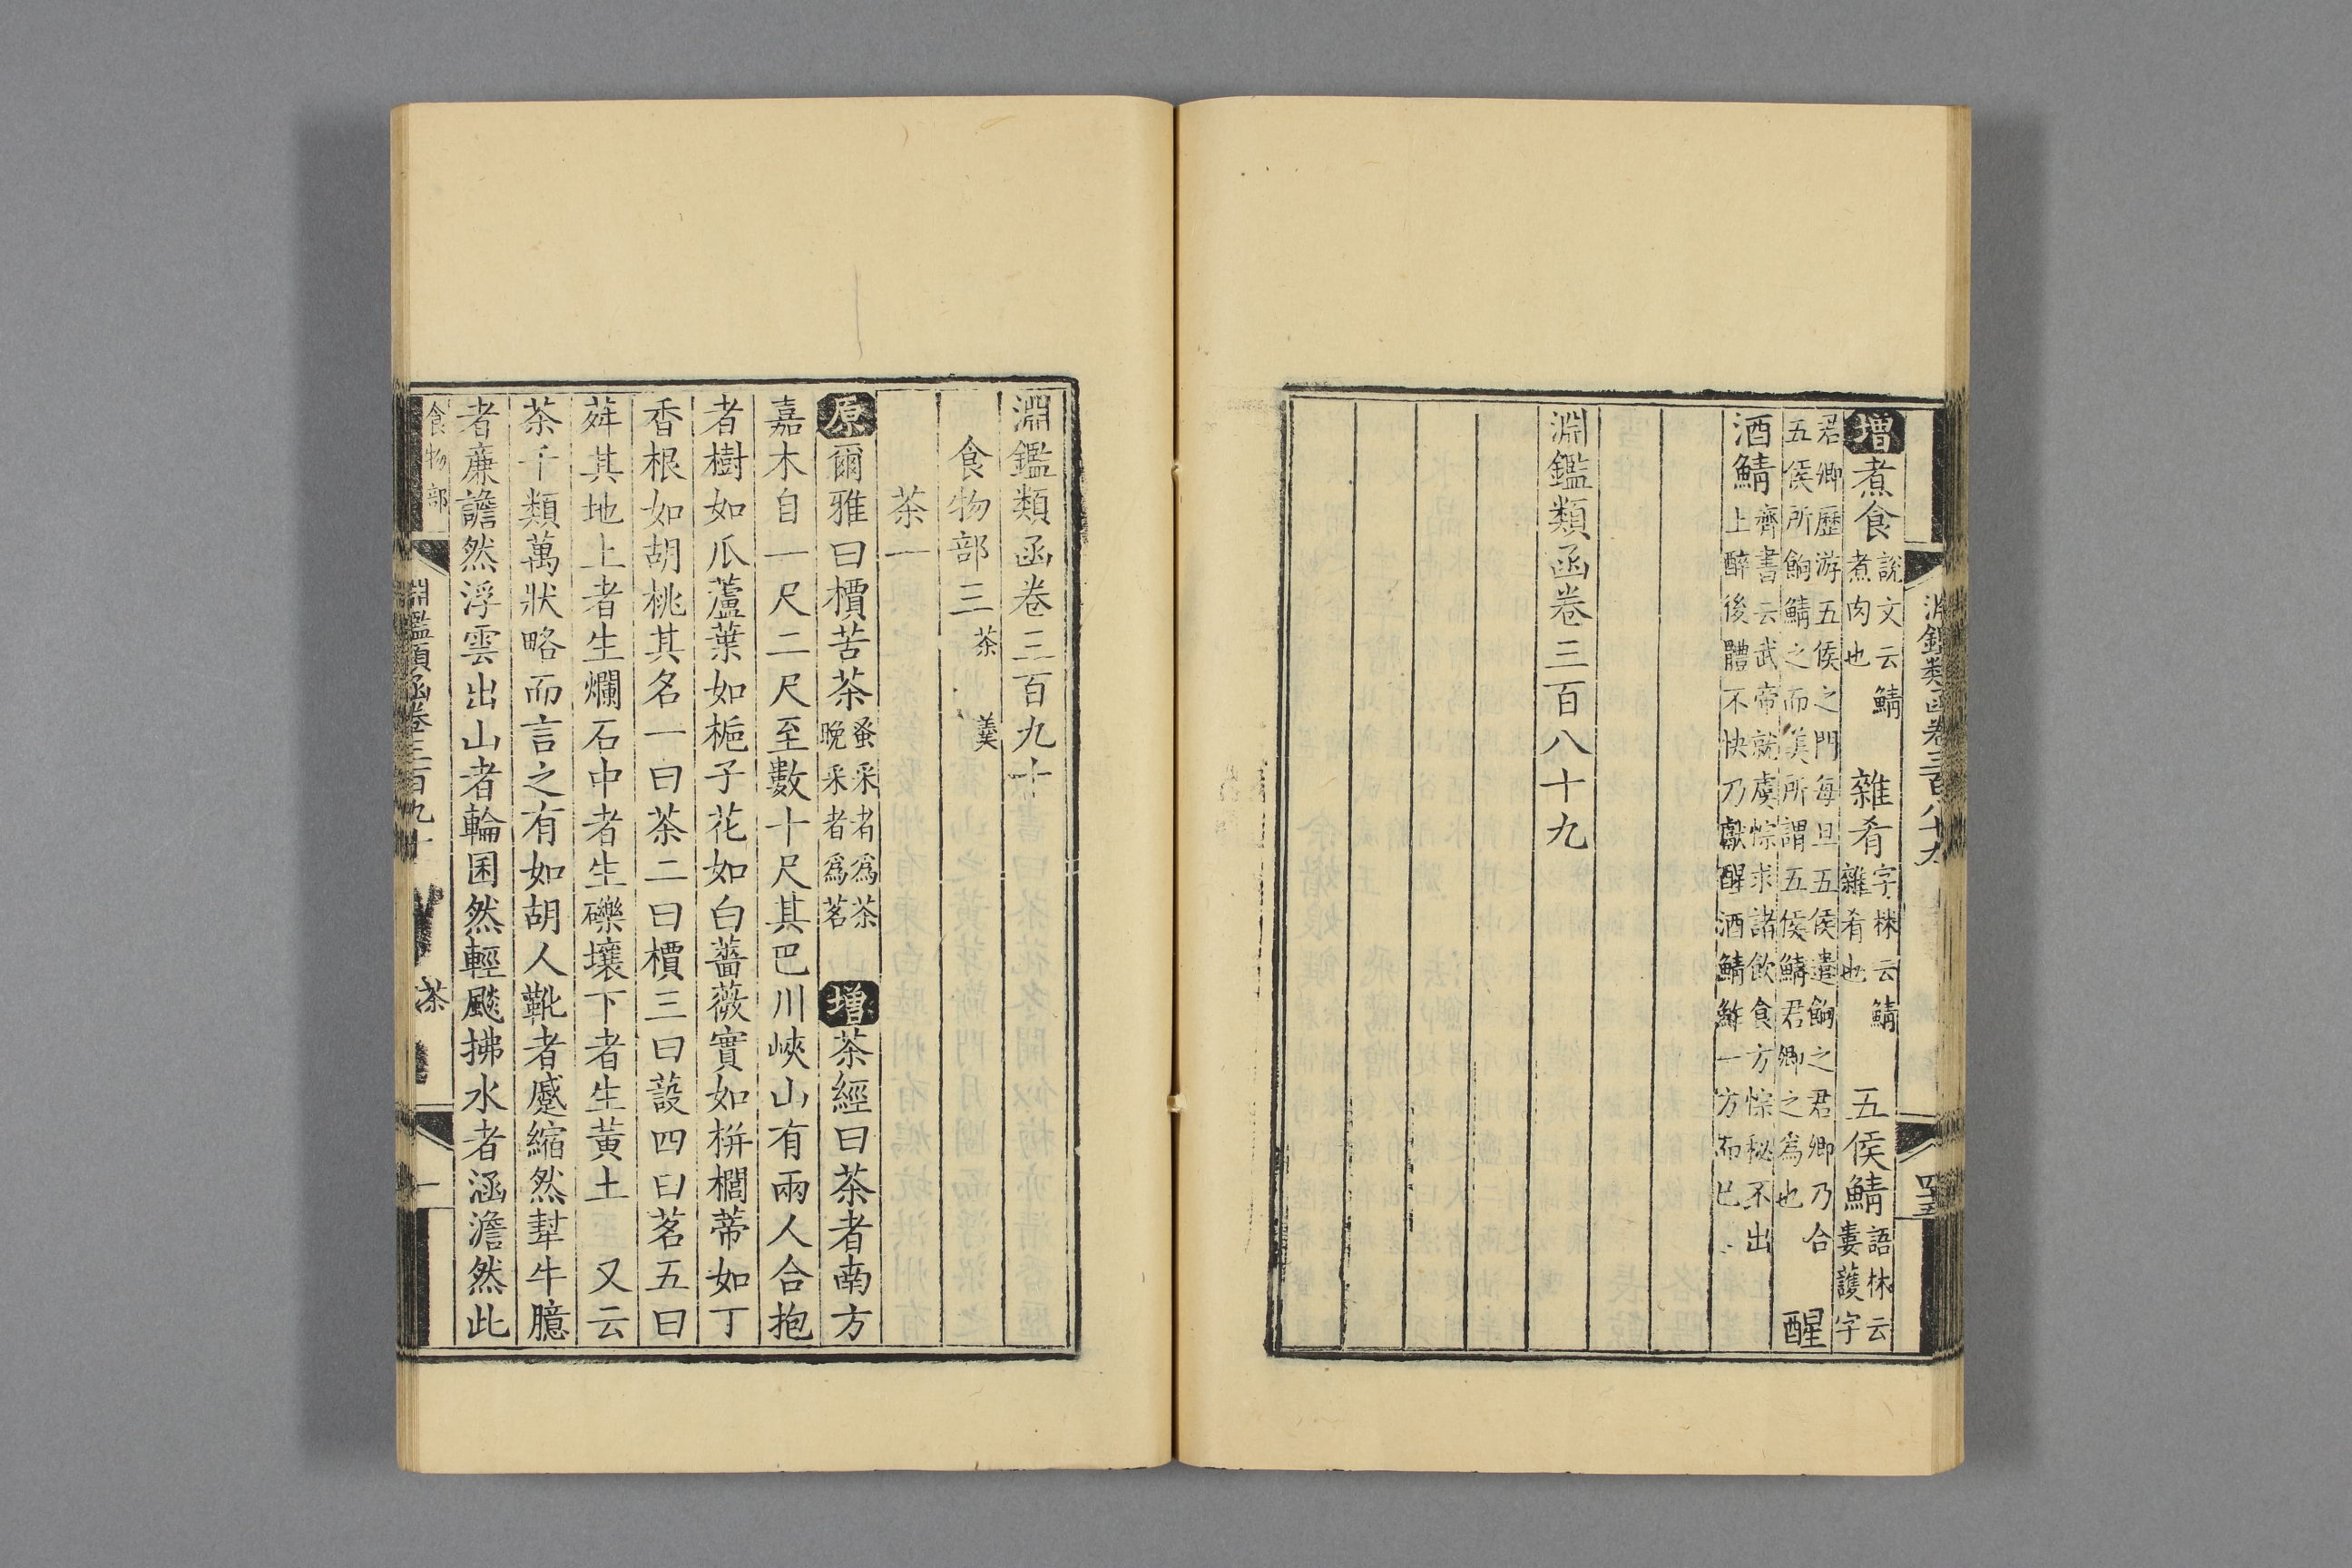 淵鑑類函卷三百八十九
增煮食說文云鯖煮肉也 雜肴字林云鯖雜肴也 五侯鯖語林云婁護字
君卿歷游五侯之門每旦五侯遺餉之君卿乃合五侯所餉鯖之而美所謂五侯鯖君卿之爲也 醒
酒鯖齊書云武帝就虞悰求諸飲食方悰秘不出上醉後體不快乃獻醒酒鯖鮓一方而已
淵鑑類函卷三百八十九
淵鑑類函卷三百九十
食物部三 茶 羹
茶一
原爾雅曰檟苦茶蚤采者爲茶晚采者爲茗 增茶經曰茶者南方
嘉木自一尺二尺至數十尺其巴川峽山有兩人合抱
者樹如瓜蘆葉如梔子花如白薔薇實如栟櫚蒂如丁
香根如胡桃其名一曰茶二曰檟三曰蔎四曰茗五曰
荈其地上者生爛石中者生礫壤下者生黃土 又云
茶千類萬狀略而言之有如胡人靴者蹙縮然犎牛臆
者廉襜然浮雲出山者輪囷然輕颷拂水者涵澹然此
食物部 淵鑑類函卷三百九十 茶 一